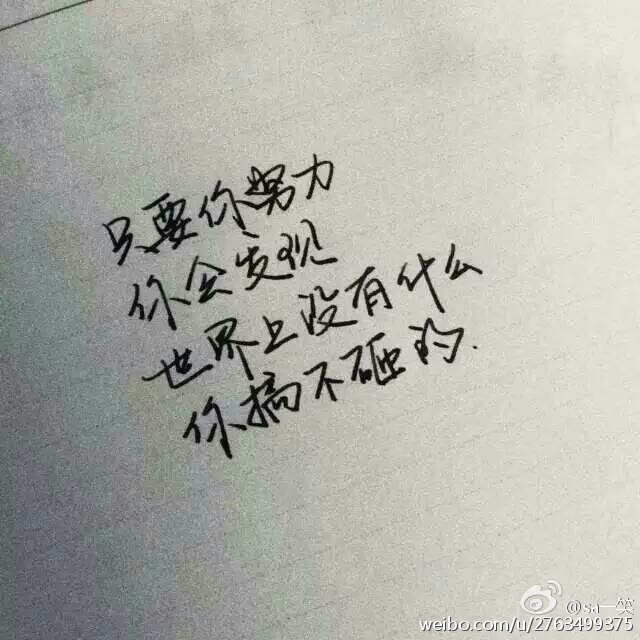 只要你努力
你会发现
世界上没有什么
你搞不砸的.
@sa一笑
weibo.com/u/2763499375